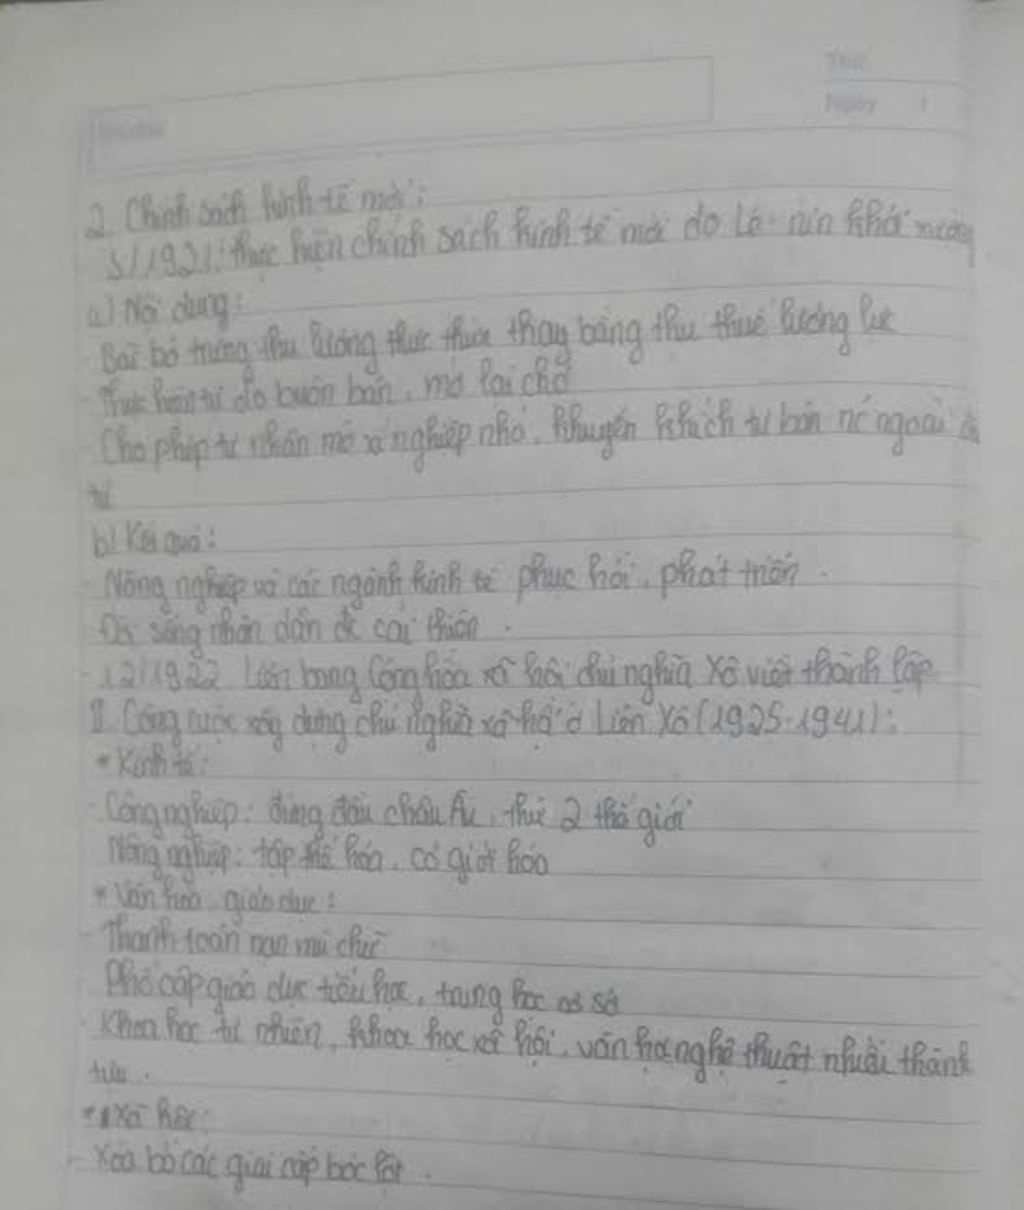 Thứ
Ngày /
2. Chính sách kinh tế mới:
3/1921: thực hiện chính sách kinh tế mới do Lê-nin khởi xướng
a) Nội dung:
Bãi bỏ trưng thu lương thực thừa thay bằng thu thuế lương thực
- Thực hiện tự do buôn bán, mở lại chợ
- Cho phép tư nhân mở xí nghiệp nhỏ, khuyến khích tư bản nc ngoài đầu
tư
b) Kết quả:
- Nông nghiệp và các ngành kinh tế phục hồi, phát triển.
Đời sống nhân dân đc cải thiện.
- 12/1922 Liên bang Cộng hòa xã hội chủ nghĩa Xô viết thành lập
II. Công cuộc xây dựng chủ nghĩa xã hội ở Liên Xô (1925-1941):
* Kinh tế:
- Công nghiệp: đứng đầu châu Âu, thứ 2 thế giới
Nông nghiệp: tập thể hóa, cơ giới hóa
* Văn hóa, giáo dục:
- Thanh toán nạn mù chữ
Phổ cập giáo dục tiểu học, trung học cơ sở
- Khoa học tự nhiên, khoa học xã hội, văn học nghệ thuật nhiều thành
tựu.
* Xã hội:
- Xóa bỏ các giai cấp bóc lột.